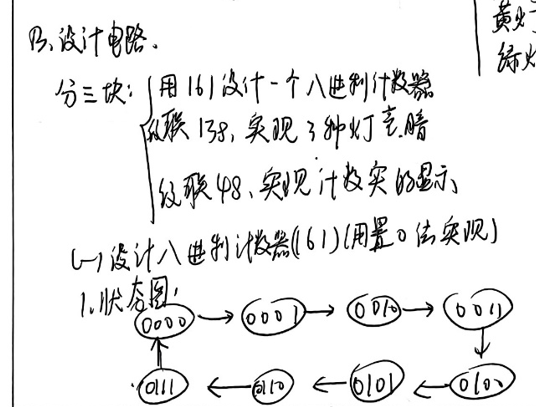 黄灯
绿灯
B、设计电路.
分三块: { 用161设计一个八进制计数器
级联138, 实现3种灯亮.暗
级联48, 实现计数实的显示、
(一)设计八进制计数器(161)(用置0法实现)
1.状态图:
0000 → 0001 → 0010 → 0011
↑ ↓
0111 ← 0110 ← 0101 ← 0100